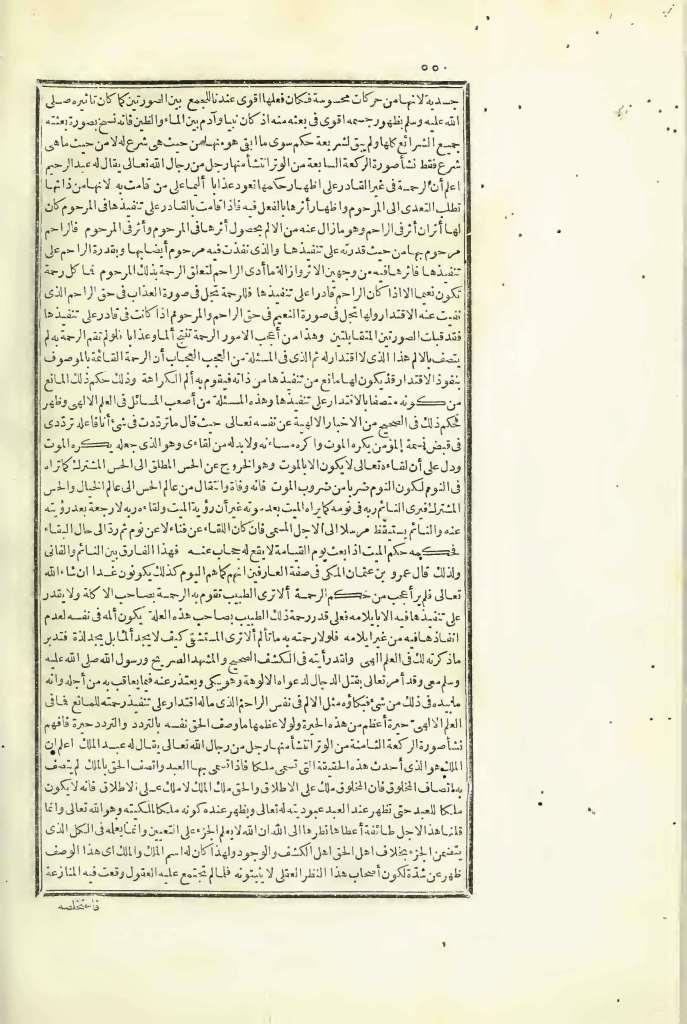 ٥٥٠
جسدية لانها من حركات محسوسة فكان فعلها اقوى عندنا للجمع بين الصورتين كما كان تاثيره صلى
الله عليه وسلم بظهور جسمه اقوى فى بعثه منه اذ كان نبيا وآدم بين الماء والطين فانه نسخ بصورة بعثته
جميع الشرائع كلها ولم يبق لشريعة حكم سوى ما ابقى هو منها من حيث هى شرع له لا من حيث ما هى
شرع فقط نشأ صورة الركعة السابعة من الوتر انتشأ منها رجل من رجال الله تعالى يقال له عبد الرحيم
اعلم أن الرحمة فى غير القادر على اظهار حكمها تعود عذابا أليما على من قامت به لانها من ذاتها
تطلب التعدى الى المرحوم واظهار أثرها بالفعل فيه فاذا قامت بالقادر على تنفيذها فى المرحوم كان
لها أثران أثر فى الراحم وهو ما زال عنه من الالم بحصول أثرها فى المرحوم وأثر فى المرحوم فالراحم
مرحوم بها من حيث قدرته على تنفيذها والذى نفذت فيه مرحوم أيضا بها وبقدرة الراحم على
تنفيذها فاثرها فيه من وجهين الاثر وازالة ما أدى الراحم لتعلق الرحمة بذلك المرحوم فما كل رحمة
تكون نعيما الا اذا كان الراحم قادرا على تنفيذها فللرحمة تجل فى صورة العذاب فى حق الراحم الذى
نفيت عنه الاقتدار ولها تجل فى صورة النعيم فى حق الراحم والمرحوم اذا كانت فى قادر على تنفيذها
فقد قبلت الصورتين المتقابلتين وهذا من أعجب الامور الرحمة تنتج ألما وعذابا فلو لم تقم الرحمة به لم
يتصف بالالم هذا الذى لا اقتدار له ثم الذى فى المسئلة من العجب العجاب أن الرحمة القائمة بالموصوف
بنفوذ الاقتدار قد يكون لها مانع من تنفيذها من ذاته فيقوم به ألم الكراهة وذلك حكم ذلك المانع
من كونه متصفا بالاقتدار على تنفيذها وهذه المسئلة من أصعب المسائل فى العلم الالهى وظهر
حكم ذلك فى الصحيح من الاخبار الالهية عن نفسه تعالى حيث قال ما ترددت فى شئ أنا فاعله ترددى
فى قبض نسمة المؤمن يكره الموت واكره مساءته ولا بد له من لقاءى وهو الذى جعله يكره الموت
ودل على أن لقاءه تعالى لا يكون الا بالموت وهو الخروج عن الحس المطلق الى الحس المشترك كما تراه
فى النوم لكون النوم ضربا من ضروب الموت فانه وفاة وانتقال من عالم الحس الى عالم الخيال والحس
المشترك فيرى النائم ربه فى نومه كما يراه الميت بعد موته غير أن رؤية الميت ولقاءه ربه لا رجعة بعد رؤيته
عنه والنائم يستيقظ مرسلا الى الاجل المسمى فان كان اللقاء عن فناء لا عن نوم ثم رد الى حال البقاء
فحكمه حكم الميت اذا بعث يوم القيامة لا يقع له حجاب عنه فهذا الفارق بين النائم والفانى
ولذلك قال عمرو بن عثمان المكى فى صفة العارفين انهم كما هم اليوم كذلك يكونون غدا ان شاء الله
تعالى فلم ير أعجب من حكم الرحمة ألا ترى الطبيب تقوم به الرحمة بصاحب الاكلة ولا يقدر
على تنفيذها فيه الا بايلامه فعلى قدر رحمة ذلك الطبيب بصاحب هذه العلة يكون ألمه فى نفسه لعدم
انفاذها فيه من غير ايلامه فلولا رحمته به ما تألم ألا ترى المستشفى كيف لا يجد ألما بل يجد لذة فتدبر
ما ذكرته لك فى العلم الهى ولقد رأيته فى الكشف الصحيح والمشهد الصريح ورسول الله صلى الله عليه
وسلم معى وقد أمر تعالى بقتل الدجال لدعواه الالوهة وهو يبكى ويعتذر عنه فيما يعاقب به من أجله وانه
ما بيده فى ذلك من شئ فبكاؤه مثل الالم فى نفس الراحم الذى ماله اقتدار على تنفيذ رحمته للمانع فما فى
العلم الالهى حيرة أعظم من هذه الحيرة ولولا عظمها ما وصف الحق نفسه بالتردد والتردد حيرة فافهم
نشأ صورة الركعة الثامنة من الوتر انتشأ منها رجل من رجال الله تعالى يقال له عبد الملك اعلم ان
الملك هو الذى أحدث هذه الحقيقة التى تسمى ملكا فاذا تسمى بها العبد واتصف الحق بالملك لم يتصف
به اتصاف المخلوق فان المخلوق ملك على الاطلاق والحق ملك الملك لا ملك على الاطلاق فانه لا يكون
ملكا للعبد حتى تظهر عند العبد عبوديته له تعالى ويظهر عنده كونه ملكا لملكيته وهو الله تعالى وانما
قلنا هذا الاجل طائفة أعطاها نظرها الى الله ان الله لا يعلم الجزء على التعيين وانما يعلمه فى الكل الذى
يتضمن الجزء بخلاف اهل الحق اهل الكشف والوجود ولهذا كان له اسم الملك والملك اى هذا الوصف
ظهر عن شدة لكون أصحاب هذا النظر العقلى لا يثبتونه فلما لم تجتمع عليه العقول وقعت فيه المنازعة
فاستخلصه